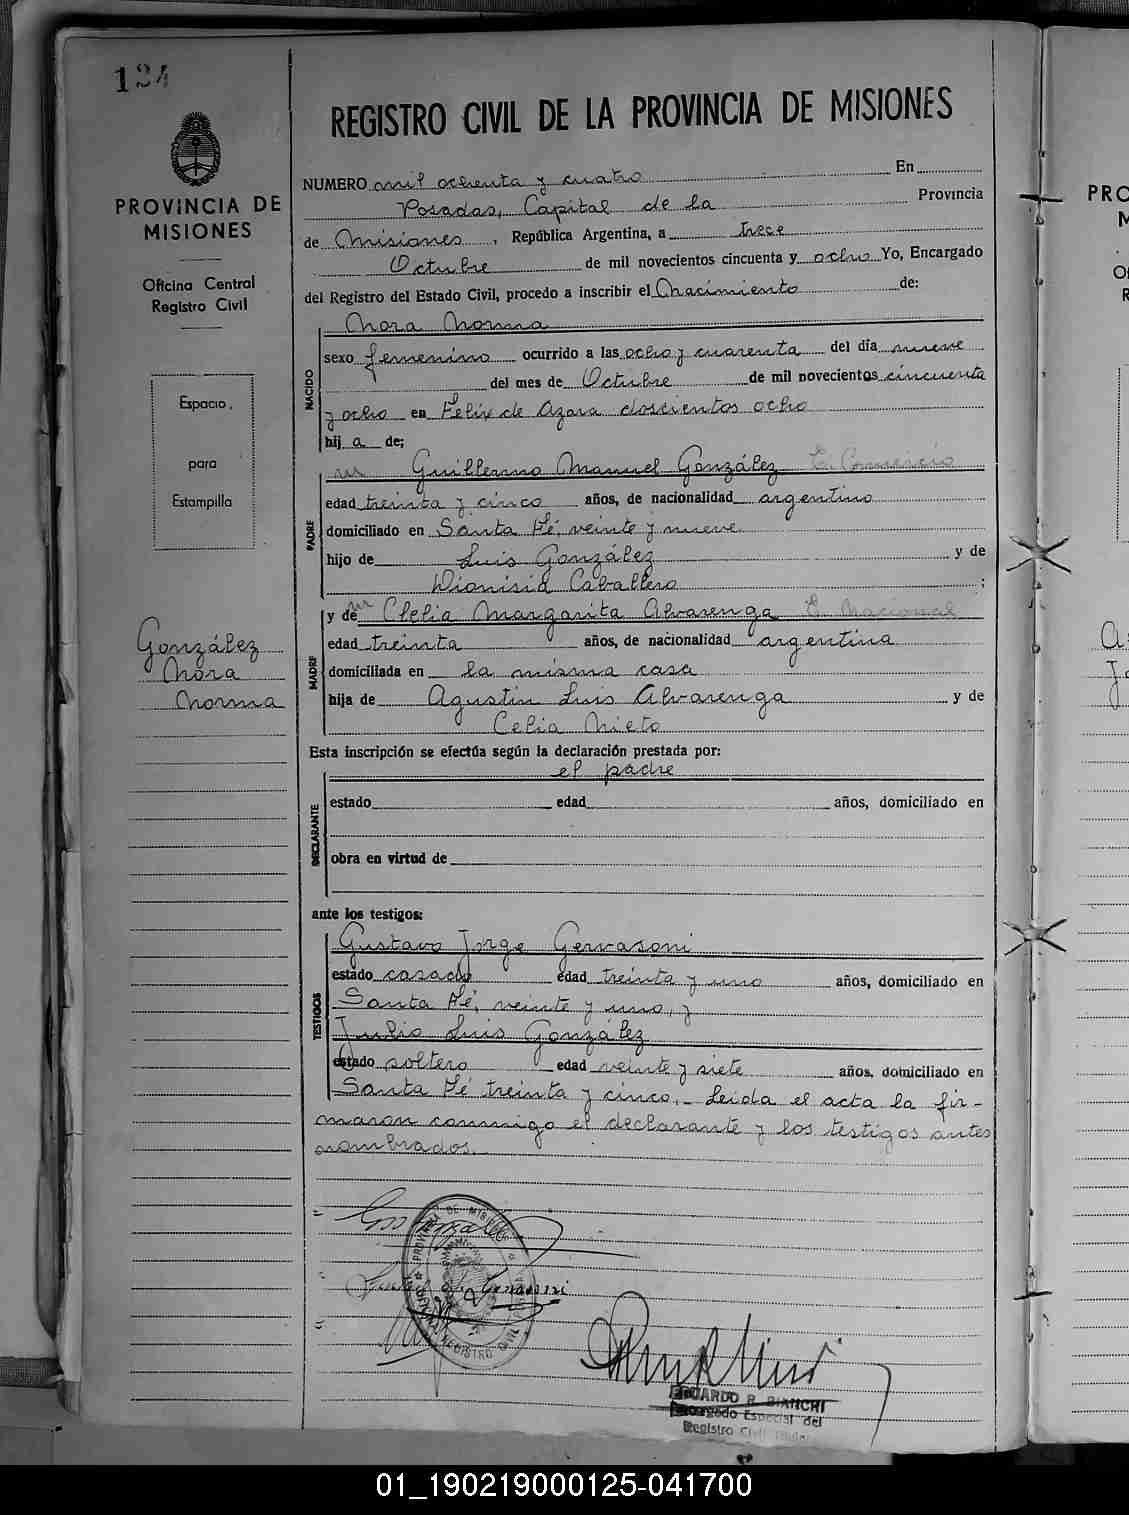 124
PROVINCIA DE
MISIONES
Oficina Central
Registro Civil
Espacio
para
Estampilla
González
Nora
Norma
REGISTRO CIVIL DE LA PROVINCIA DE MISIONES
NUMERO mil ochenta y cuatro En
Posadas, Capital de la Provincia
de Misiones, República Argentina, a trece
Octubre de mil novecientos cincuenta y ocho Yo, Encargado
del Registro del Estado Civil, procedo a inscribir el Nacimiento de:
NACIDO
Nora Norma
sexo femenino ocurrido a las ocho y cuarenta del día nueve
del mes de Octubre de mil novecientos cincuenta
y ocho en Felix de Azara doscientos ocho
hij a de;
PADRE
Guillermo Manuel González E. Comercio
edad treinta y cinco años, de nacionalidad argentino
domiciliado en Santa Fé, veinte y nueve
hijo de Luis González y de
Dionisia Caballero ;
MADRE
y de Clelia Margarita Alvarenga E. Nacional
edad treinta años, de nacionalidad argentina
domiciliada en la misma casa
hija de Agustin Luis Alvarenga y de
Celia Nieto
Esta inscripción se efectúa según la declaración prestada por:
DECLARANTE
el padre
estado edad años, domiciliado en
obra en virtud de
ante los testigos:
TESTIGOS
Gustavo Jorge Gervasoni
estado casado edad treinta y uno años, domiciliado en
Santa Fé, veinte y uno, y
Julio Luis González
estado soltero edad veinte y siete años, domiciliado en
Santa Fé treinta y cinco,- Leida el acta la fir-
maron conmigo el declarante y los testigos antes
nombrados.
PROVINCIA DE MISIONES
REGISTRO CIVIL
EDUARDO R. BIANCHI
Encargado Especial del
Registro Civil
PRO
01_190219000125-041700